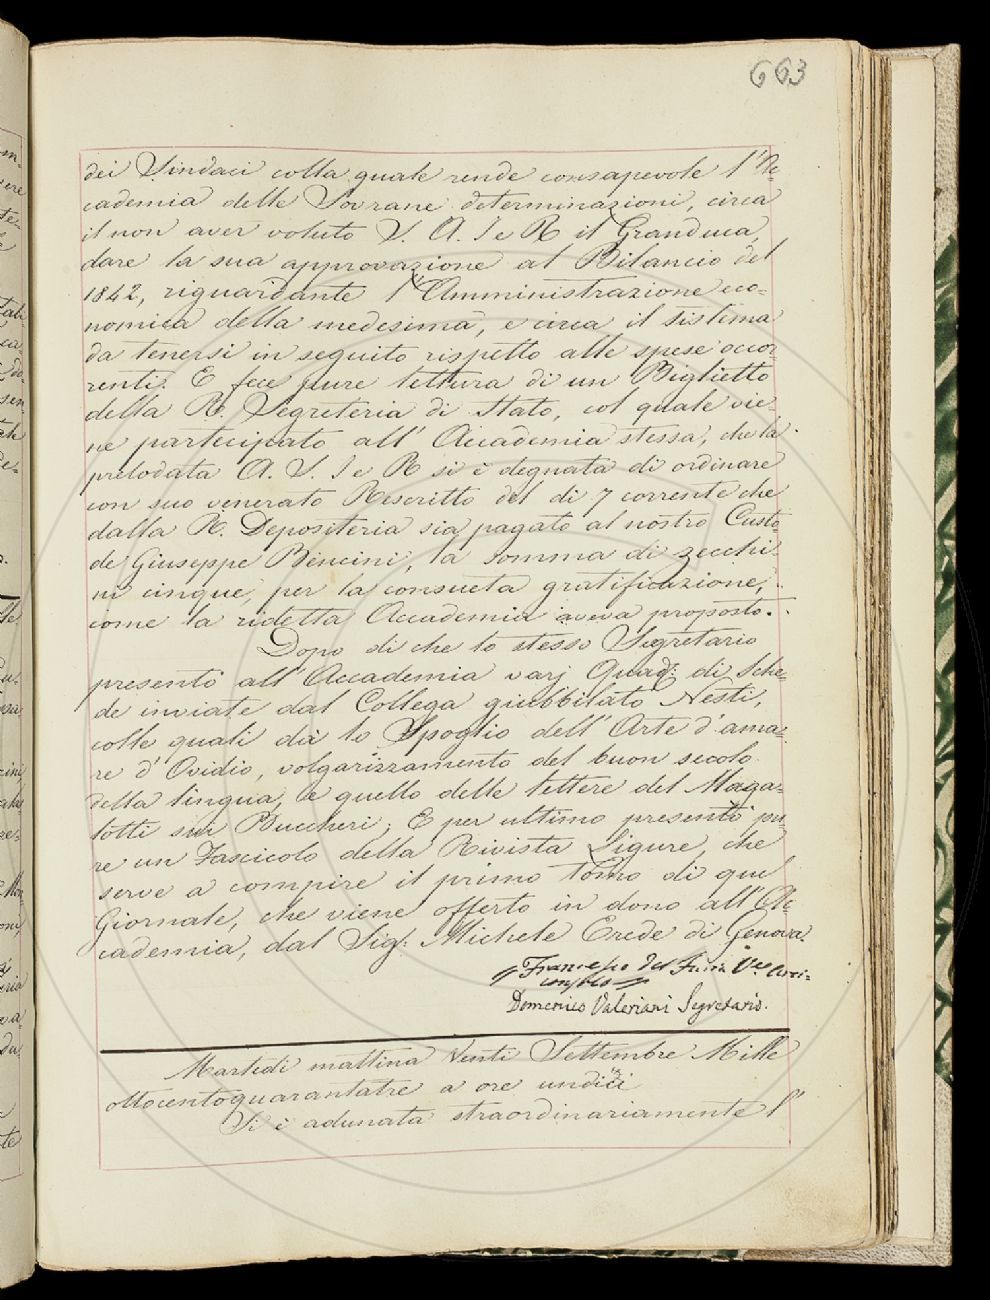 663
dei Sindaci colla quale rende consapevole l'Ac-
cademia delle Sovrane determinazioni, circa
il non aver voluto S. A. I e R il Granduca,
dare la sua approvazione al Bilancio del
1842, riguardante l'Amministrazione eco-
nomica della medesima, e circa il sistema
da tenersi in seguito rispetto alle spese occor-
renti. E fece pure lettura di un Biglietto
della R. Segreteria di Stato, col quale vie-
ne partecipato all'Accademia stessa, che la
prelodata A. S. I e R si è degnata di ordinare
con suo venerato Rescritto del di 7 corrente che
dalla R. Depositeria sia pagato al nostro Custo-
de Giuseppe Bencini, la somma di zecchi-
ni cinque, per la consueta gratificazione,
come la ridetta Accademia aveva proposto.
Dopo di che lo stesso Segretario
presentò all'Accademia varj Quad: di Sche-
de inviate dal Collega giubbilato Nesti,
colle quali dà lo Spoglio dell'Arte d'ama-
re d'Ovidio, volgarizzamento del buon secolo
della lingua, e quello delle lettere del Maga-
lotti sui Buccheri; E per ultimo presentò pu-
re un Fascicolo della Rivista Ligure, che
serve a compire il primo Tomo di quel
Giornale, che viene offerto in dono all'Ac-
cademia, dal Sig: Michele Erede di Genova.
Francesco Del Furia Vce Arci-
consolo
Domenico Valeriani Segretario.
Martedì mattina Venti Settembre Mille
ottocentoquarantatre a ore undici
Si è adunata straordinariamente l'